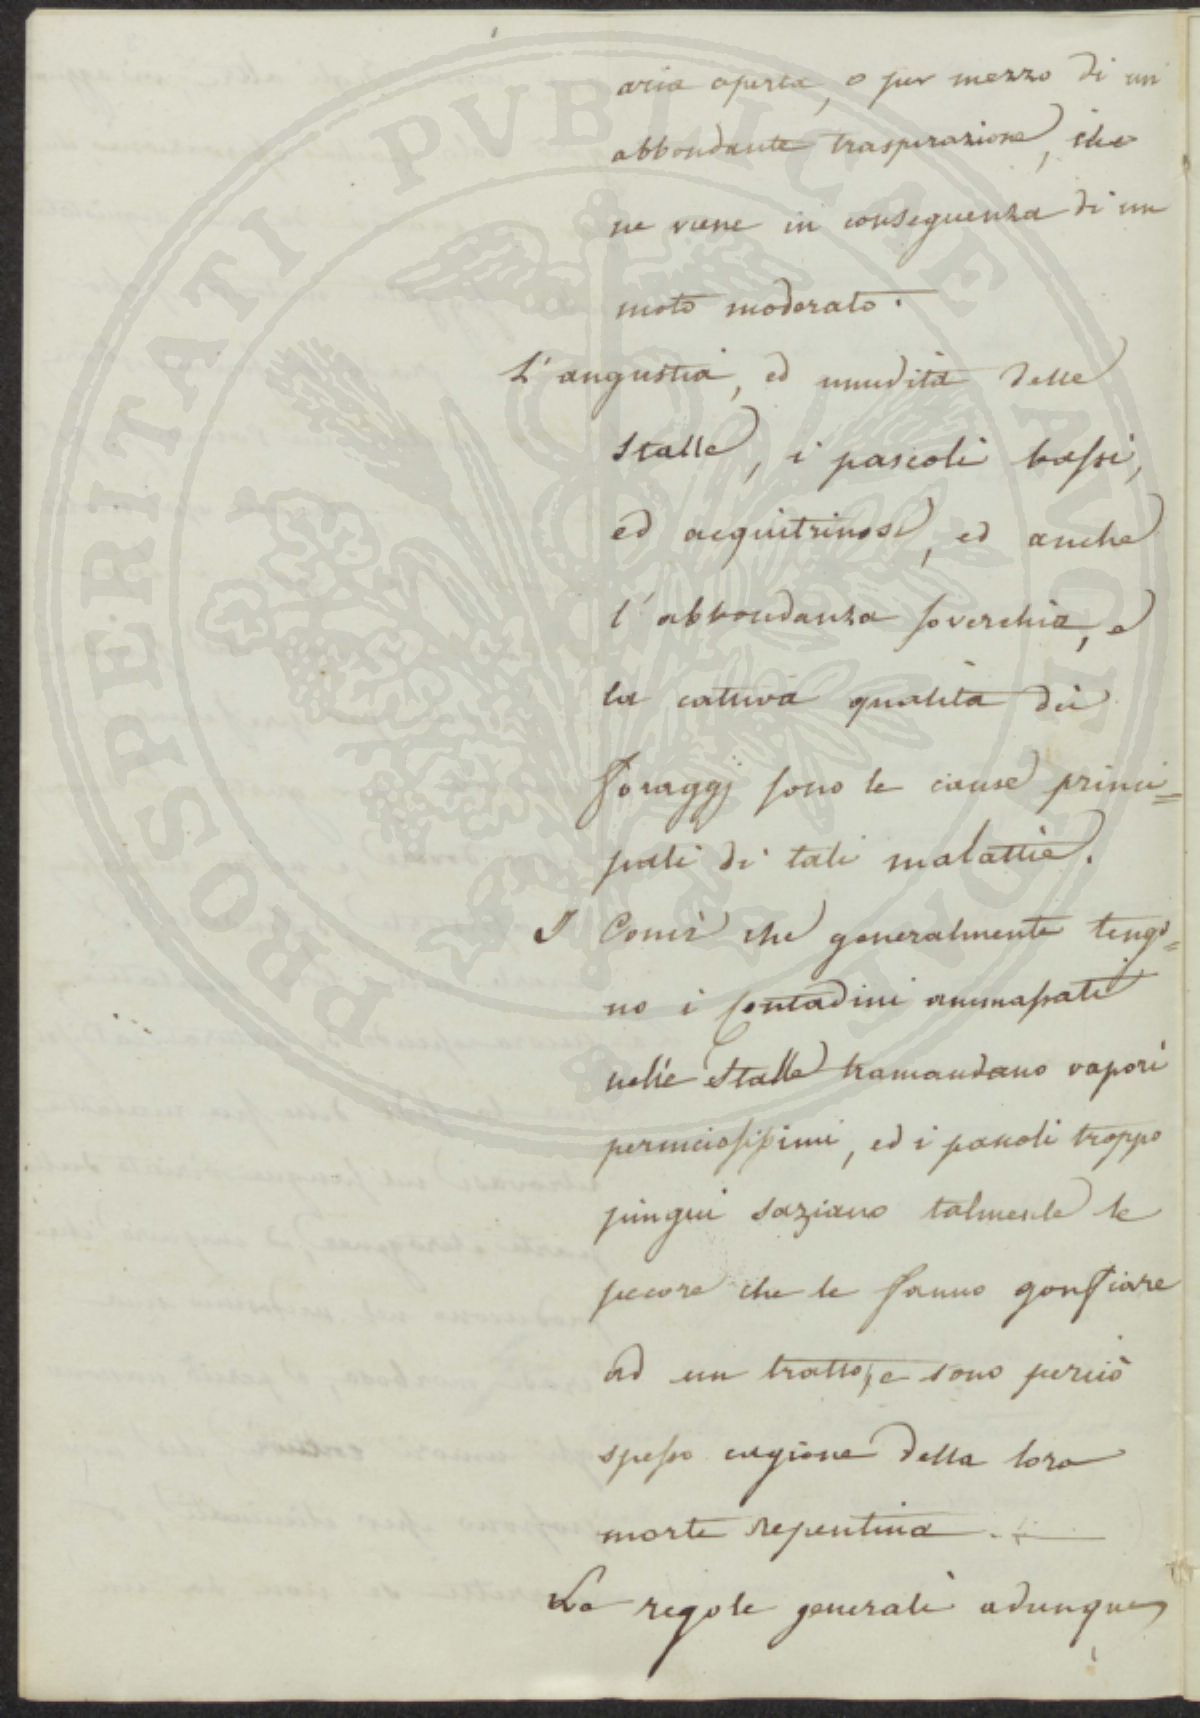 aria aperta, o per mezzo di un
abbondante traspirazione, che
ne viene in conseguenza di un
moto moderato.
L'angustia, ed umidità delle
Stalle, i pascoli bassi,
ed acquitrinosi, ed anche
l'abbondanza soverchia, e
la cattiva qualità dei
foraggj sono le cause princi=
pali di tali malattie.
I Concj che generalmente tengo=
no i Contadini ammassati
nelle Stalle tramandano vapori
perniciosissimi, ed i pascoli troppo
pingui saziano talmente le
pecore che le fanno gonfiare
ad un tratto, e sono perciò
spesso cagione della loro
morte repentina.
Le regole generali adunque
PROSPERITATI PVBLICAE AVGENDAE